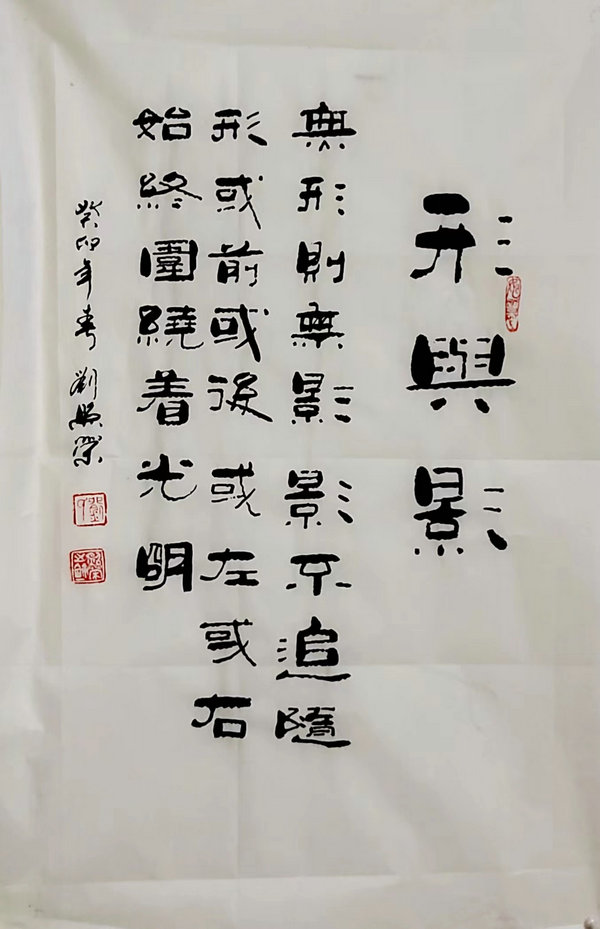 形與影
無形則無影影不追隨
形或前或後或左或右
始終圍繞着光明
癸卯年春劉